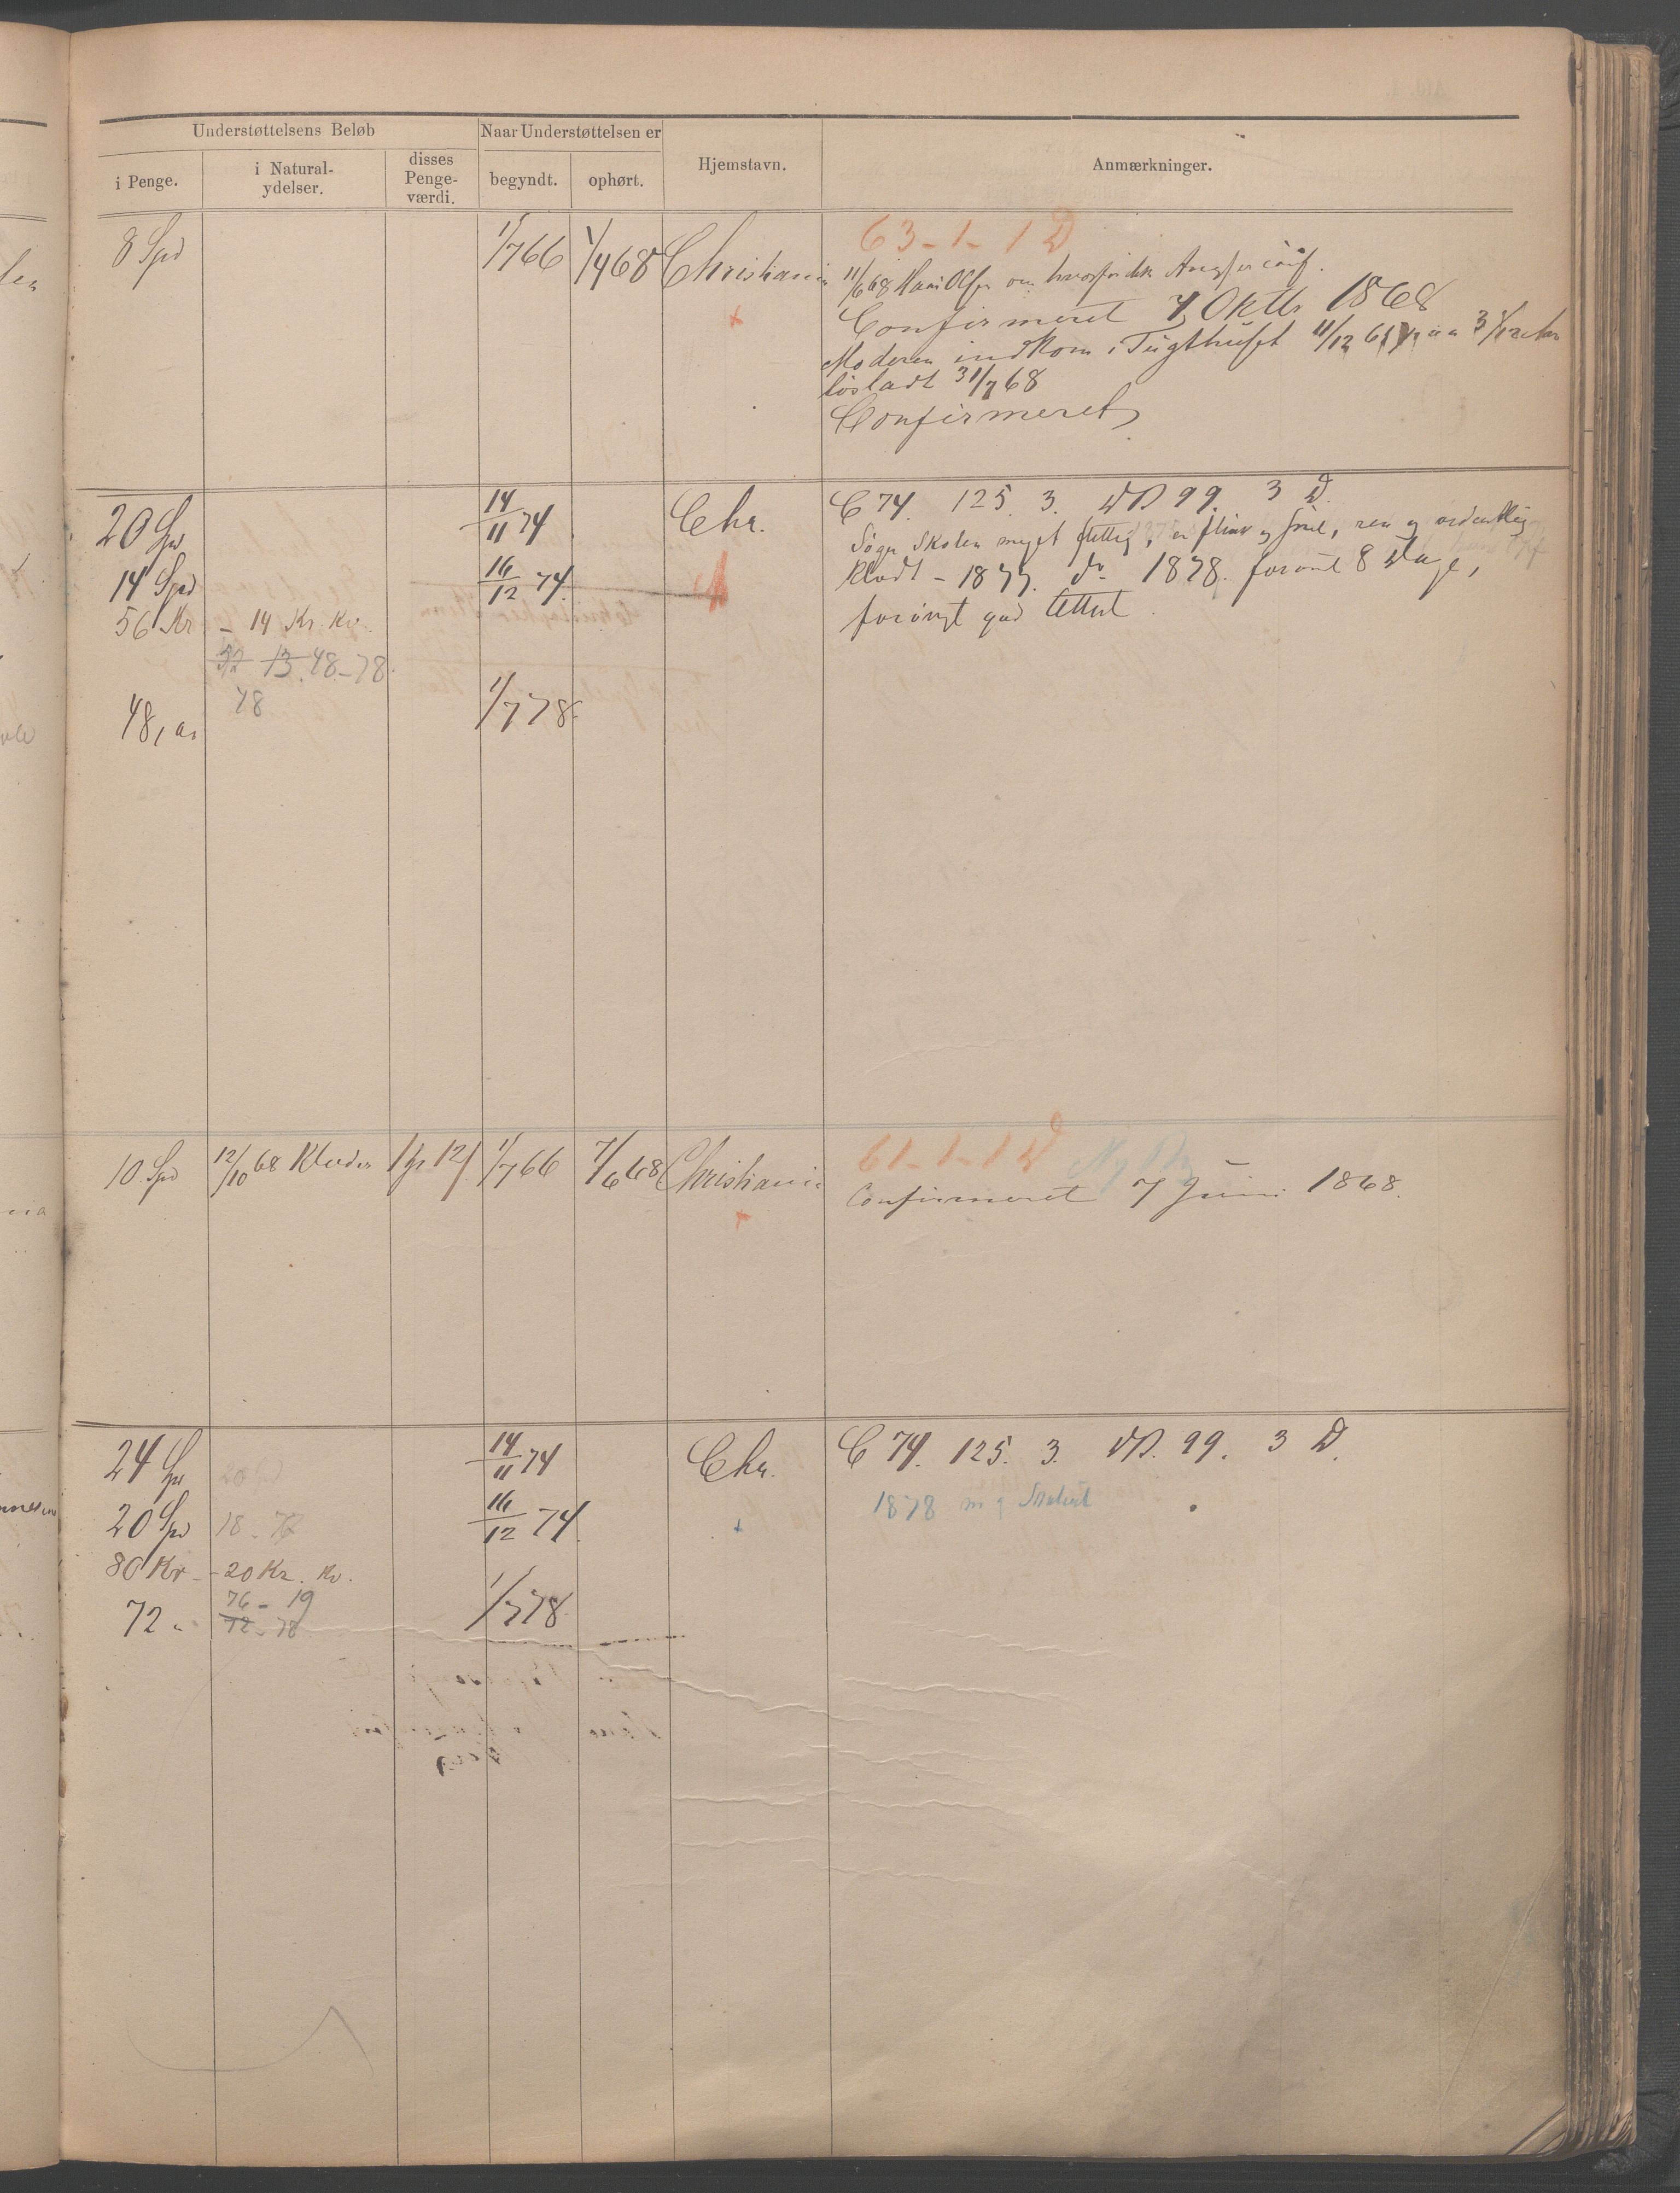 Understøttelsens Beløb
Naar Understøttelsen er
i Penge.
i Natural-
ydelser.
disses
Penge-
værdi.
begyndt.
ophørt.
Hjemstavn.
Anmærkninger.
8 Spd
1/7 66
1/4 68
Christiania
63-1-1 D
11/6 68 om
Confirmeret 4 Oktbr 1868
Moderen indkom i Tugthuset 11/12
løsladt 31/7 68
Confirmeret
20 Spd
14/11 74
Chr.
C 74. 125. 3. 99. 3 D.
14 Spd
16/12 74.
Søger Skolen meget flittig, er flink og snil, ren og ordentlig
klædt - 1877. do 1878. forsømt 8 Dage,
forøvrigt god Attest.
56 Kr - 14 Kr. Kv.
32 13. 48-78.
48
48,
1/7 78.
10 Spd
12/10 68 Klæder
1/7 66
7/6 68
Christiania
61-1-1 D
Confirmeret 7 Juni 1868.
24 Spd
20 Spd
14/11 74
Chr.
C 74. 125. 3. 99. 3 D.
20 Spd
18-72
16/12 74.
1878
80 Kr. - 20 Kr. Kv.
76-19
72
72-78
1/7 78.